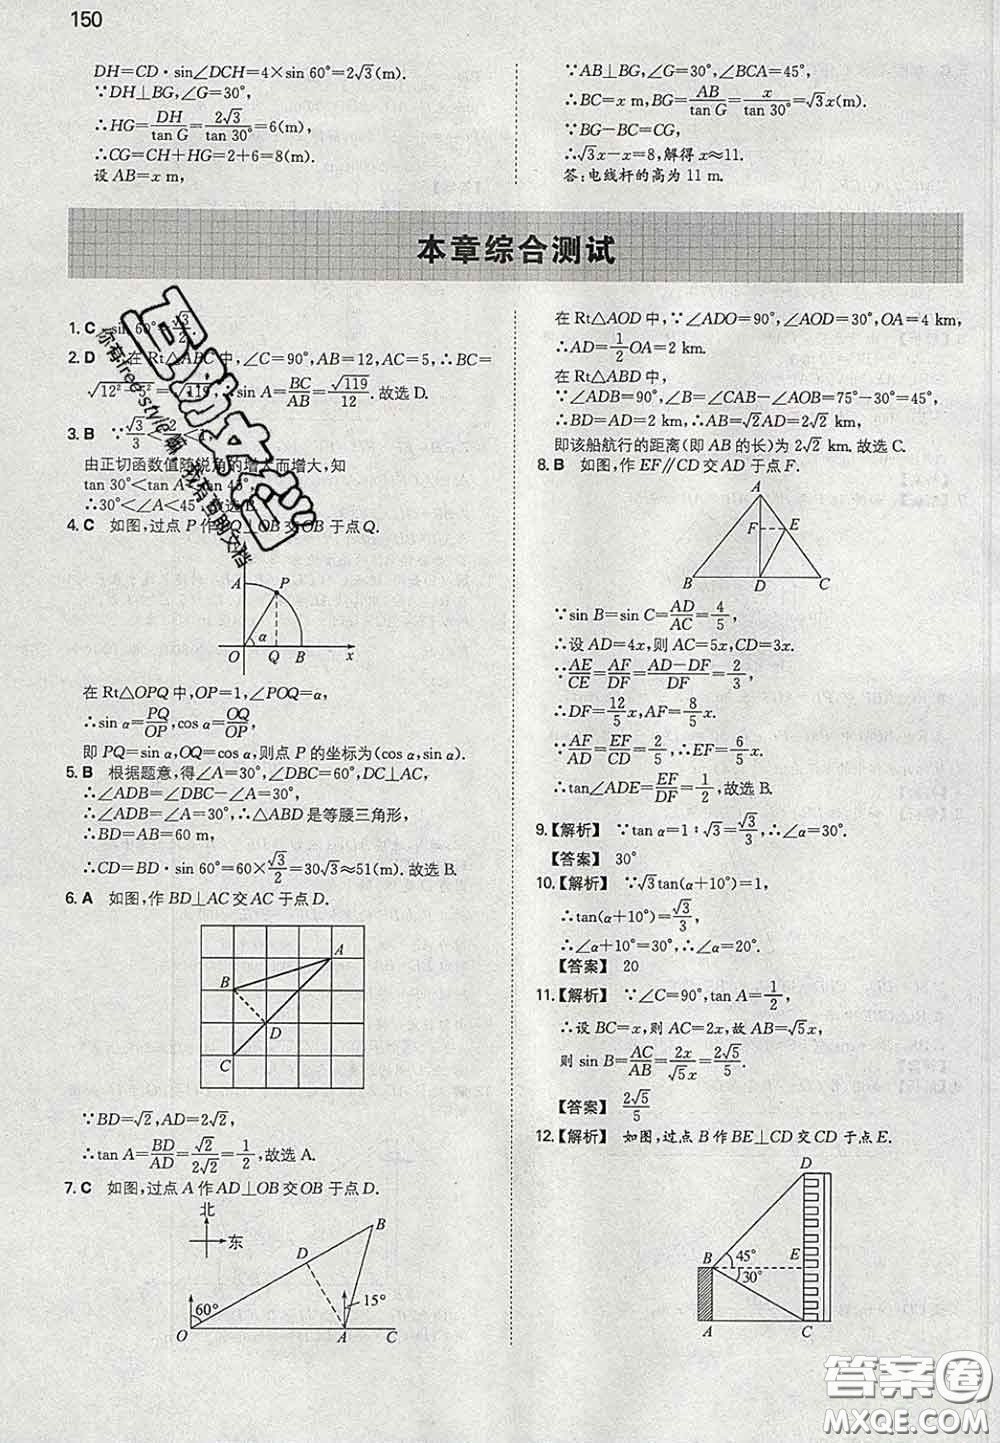 150
DH=CD·sin∠DCH=4×sin 60°=2√3(m).
∵DH⊥BG,∠G=30°,
∴HG=DH/tan G=2√3/tan 30°=6(m),
∴CG=CH+HG=2+6=8(m).
设 AB=x m,
∵AB⊥BG,∠G=30°,∠BCA=45°,
∴BC=x m,BG=AB/tan G=x/tan 30°=√3x(m).
∵BG-BC=CG,
∴√3x-x=8,解得 x≈11.
答:电线杆的高为 11 m.
本章综合测试
1. C sin 60°=√3/2.
2. D 在 Rt△ABC 中,∠C=90°,AB=12,AC=5,∴BC=
√12²-5²=√119,∴sin A=BC/AB=√119/12.故选 D.
3. B ∵√3/3<2/2<1,
由正切函数值随锐角的增大而增大,知
tan 30°<tan A<tan 45°,
∴30°<∠A<45°,故选 B.
4. C 如图,过点 P 作 PQ⊥OB 交 OB 于点 Q.
A P α O Q B x
在 Rt△OPQ 中,OP=1,∠POQ=α,
∴sin α=PQ/OP,cos α=OQ/OP,
即 PQ=sin α,OQ=cos α,则点 P 的坐标为(cos α,sin α).
5. B 根据题意,得∠A=30°,∠DBC=60°,DC⊥AC,
∴∠ADB=∠DBC-∠A=30°,
∴∠ADB=∠A=30°,∴△ABD 是等腰三角形,
∴BD=AB=60 m,
∴CD=BD·sin 60°=60×√3/2=30√3≈51(m).故选 B.
6. A 如图,作 BD⊥AC 交 AC 于点 D.
A
B
D
C
∵BD=√2,AD=2√2,
∴tan A=BD/AD=√2/2√2=1/2,故选 A.
7. C 如图,过点 A 作 AD⊥OB 交 OB 于点 D.
北
东
B
D
60° 15°
O A C
在 Rt△AOD 中,∵∠ADO=90°,∠AOD=30°,OA=4 km,
∴AD=1/2OA=2 km.
在 Rt△ABD 中,
∵∠ADB=90°,∠B=∠CAB-∠AOB=75°-30°=45°,
∴BD=AD=2 km,∴AB=√2AD=2√2 km,
即该船航行的距离(即 AB 的长)为 2√2 km.故选 C.
8. B 如图,作 EF∥CD 交 AD 于点 F.
A
F E
B D C
∵sin B=sin C=AD/AC=4/5,
∴设 AD=4x,则 AC=5x,CD=3x.
∵AE/CE=AF/DF=AD-DF/DF=2/3,
∴DF=12/5x,AF=8/5x.
∵AF/AD=EF/CD=2/5,∴EF=6/5x.
∴tan∠ADE=EF/DF=1/2,故选 B.
9.【解析】 ∵tan α=1∶√3=√3/3,∴∠α=30°.
【答案】 30°
10.【解析】 ∵√3tan(α+10°)=1,
∴tan(α+10°)=√3/3,
∴∠α+10°=30°,∴∠α=20°.
【答案】 20
11.【解析】 ∵∠C=90°,tan A=1/2,
∴设 BC=x,则 AC=2x,故 AB=√5x,
则 sin B=AC/AB=2x/√5x=2√5/5.
【答案】 2√5/5
12.【解析】 如图,过点 B 作 BE⊥CD 交 CD 于点 E.
D
B 45° E
30°
A C
答案圈
MXQE.COM